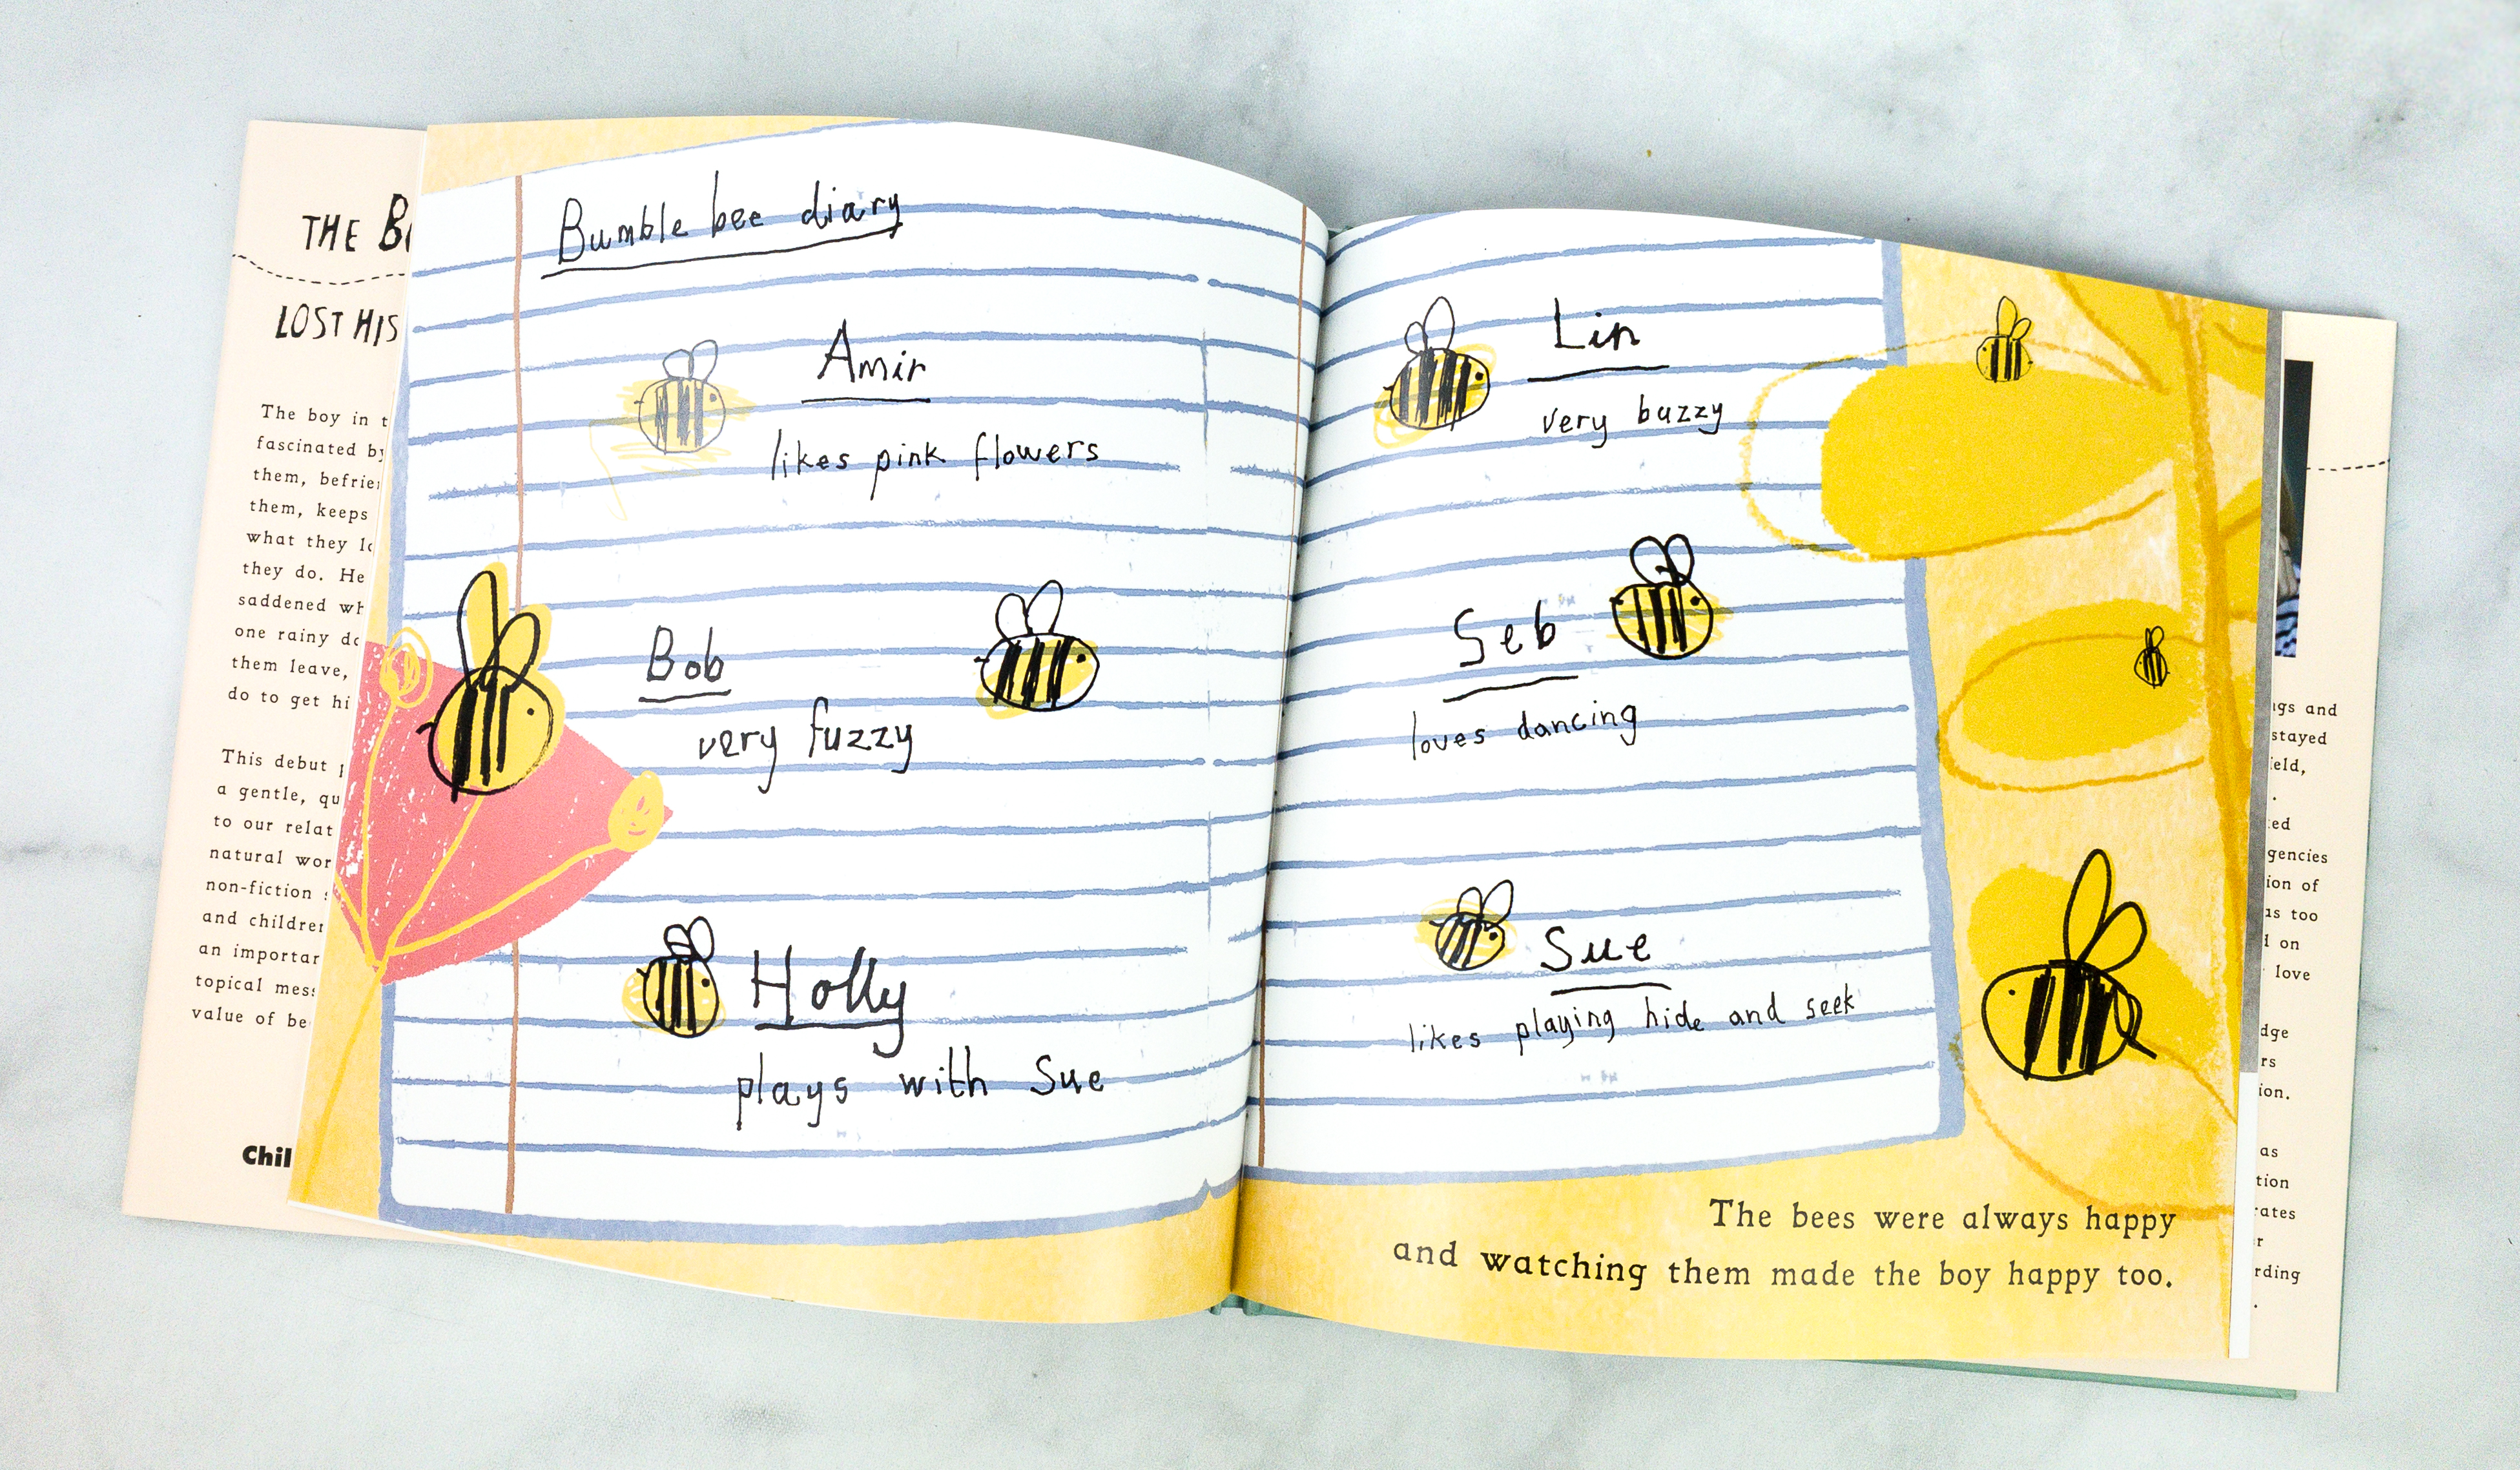 THE B
LOST HIS
The boy in t
fascinated by
them, befrie
them, keeps
what they
they do. He
saddened wh
one rainy
them leave,
do to get hi
This debut
a gentle, qu
to our relat
natural wor
non-fiction
and children
an importan
topical mess
value of be
Chil
Bumble bee diary
Amir
likes pink flowers
Bob
very fuzzy
Holly
plays with Sue
Lin
very buzzy
Seb
loves dancing
Sue
likes playing hide and seek
The bees were always happy
and watching them made the boy happy too.
ngs and
stayed
ield,
ted
gencies
ion of
as too
on
love
dge
rs
ion.
as
tion
rates
r
rding